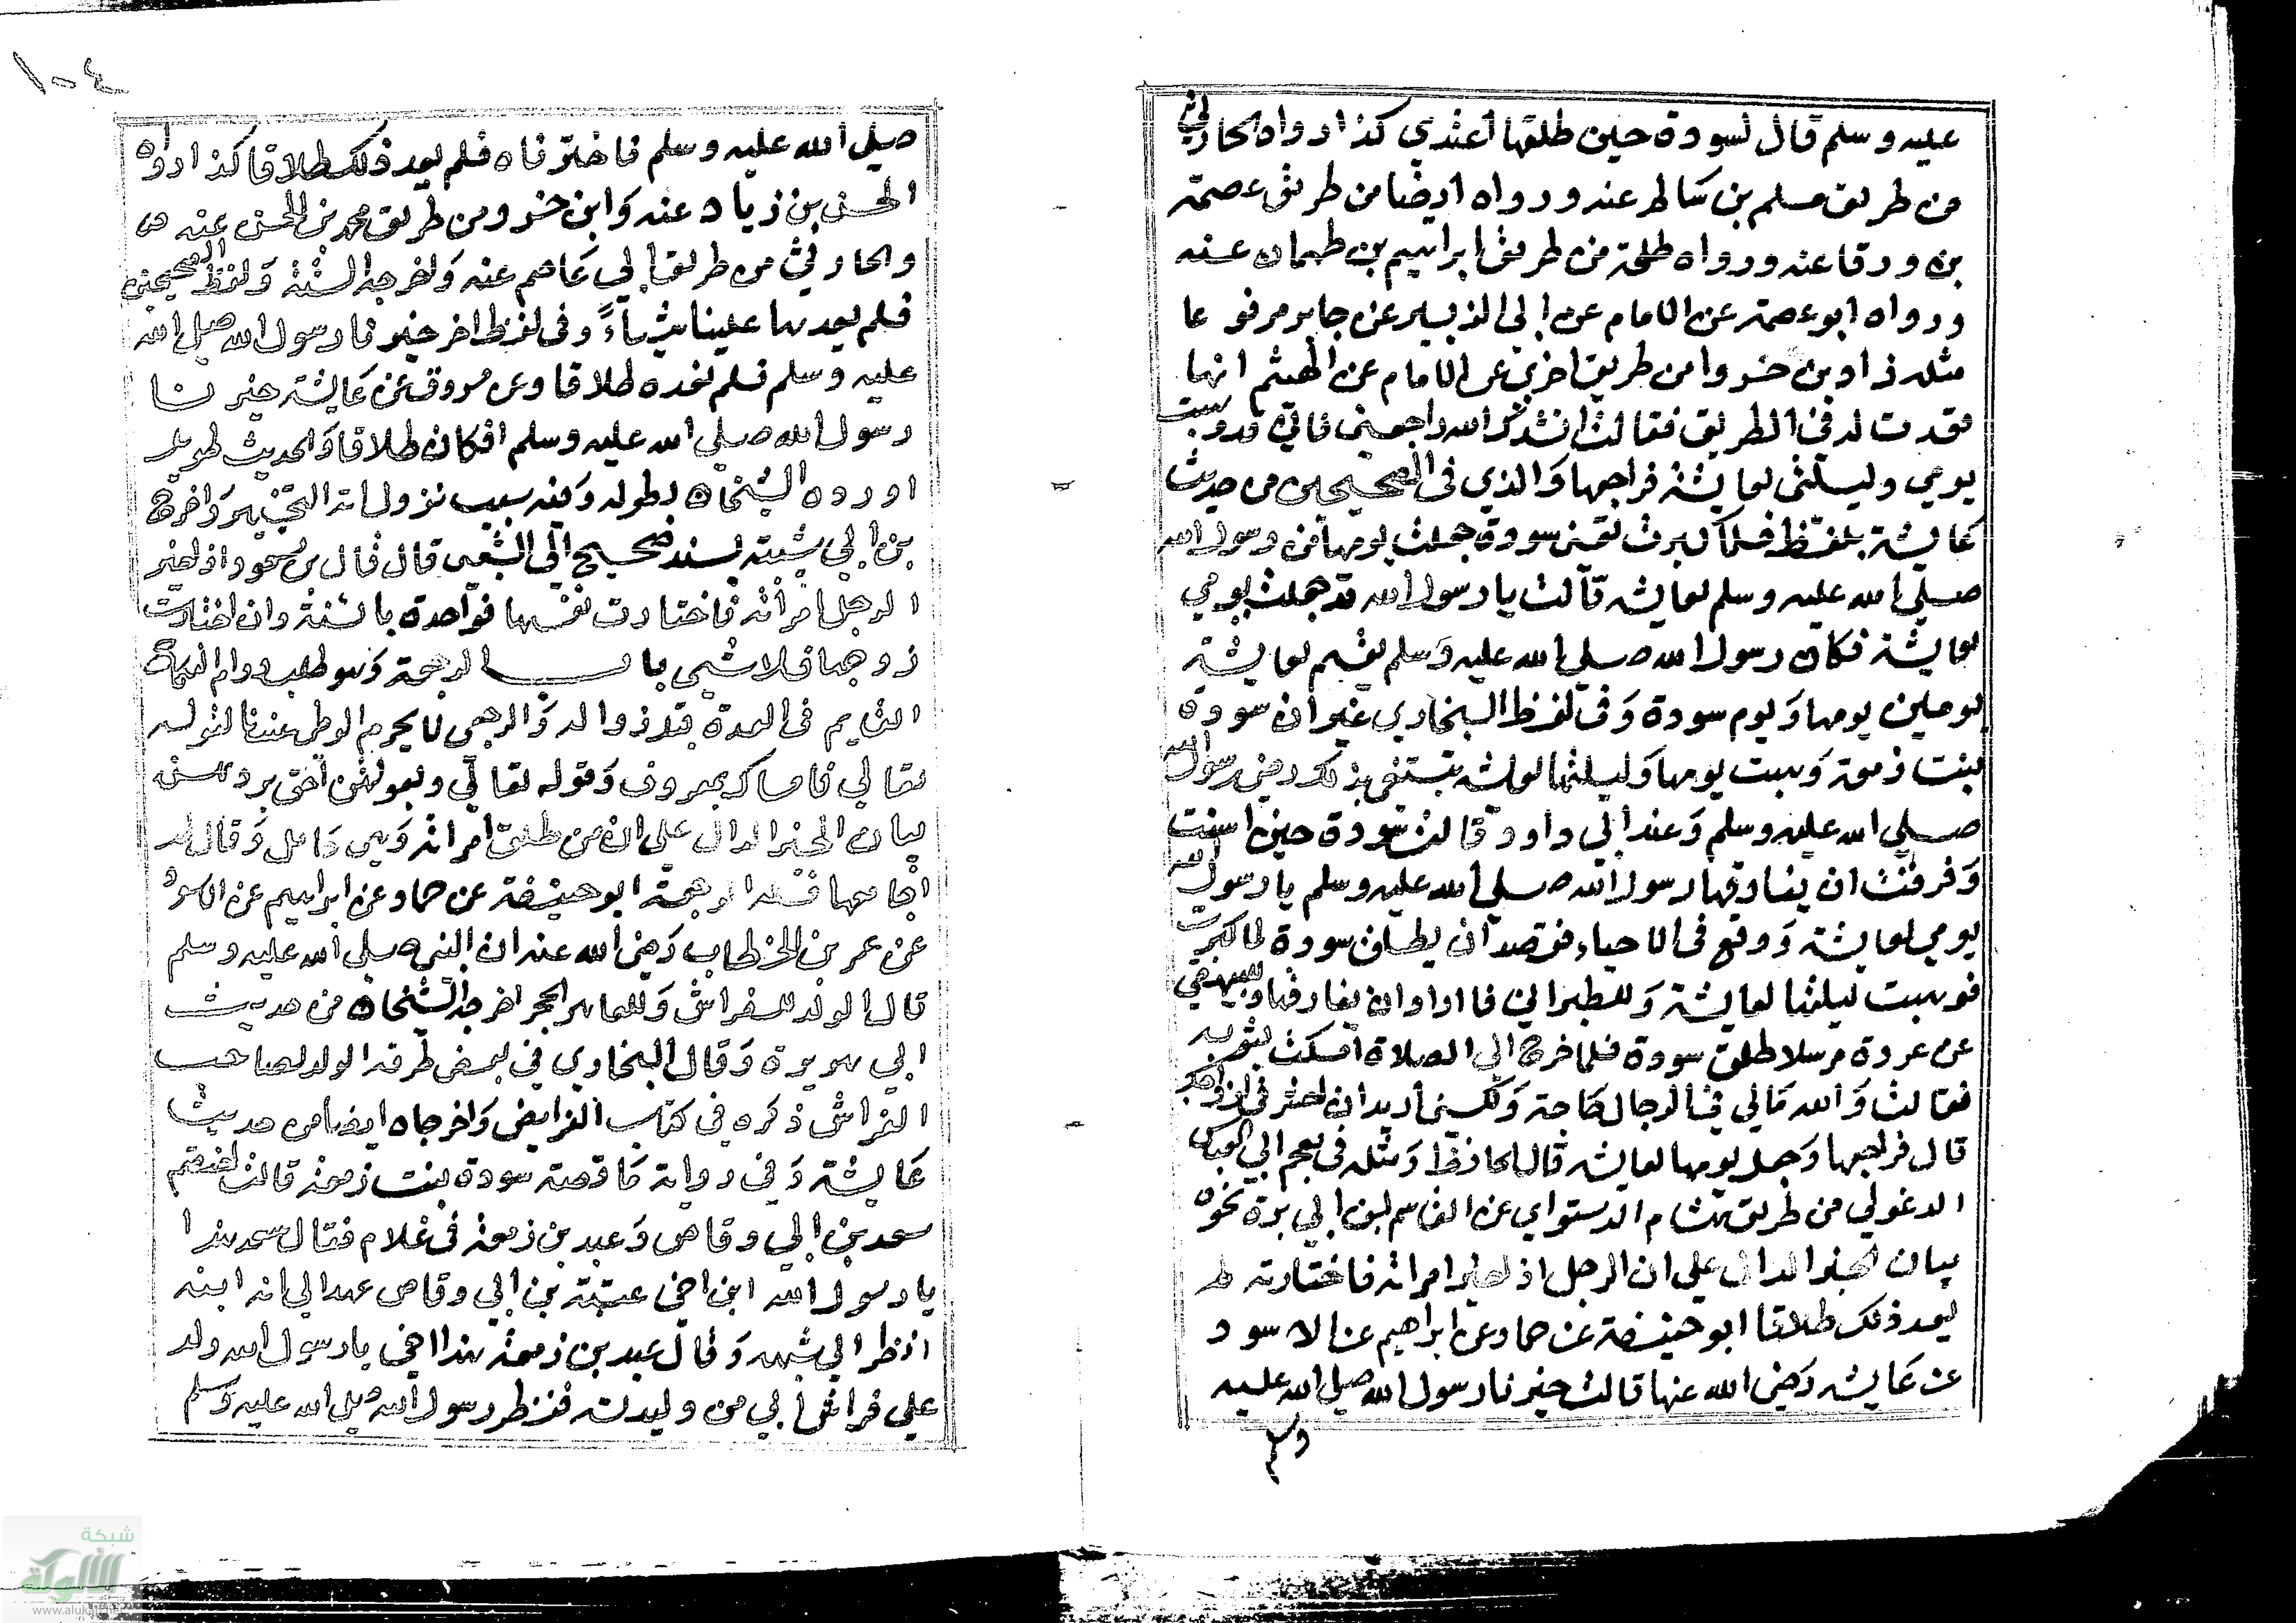 عليه وسلم قال لسودة حين طلقها اعتدي كذا رواه الحارثي
من طريق مسلم بن سالم عنه ورواه ايضا من طريق عصمة
بن ورقا عنه ورواه طلحة من طريق ابراهيم بن طهمان عنه
ورواه ابو عصمة عن الامام عن ابي الزبير عن جابر مرفوعا
مثله زاد بن خسرو من طريق اخري عن الامام عن الهيثم انها
قعدت له في الطريق فقالت انشدك الله راجعني فاني قد وهبت
يومي وليلتي لعايشة فراجعها والذي في الصحيحين من حديث
عايشة بلفظ فلما كبرت تعني سودة جعلت يومها من رسول الله
صلي الله عليه وسلم لعايشة قالت يا رسول الله قد جعلت يومي
لعايشة فكان رسول الله صلي الله عليه وسلم يقسم لعايشة
يومين يومها ويوم سودة وفي لفظ البخاري غير ان سودة
بنت زمعة وهبت يومها وليلتها لعايشة تبتغي بذلك رضي رسول الله
صلي الله عليه وسلم وعند ابي داود قالت سودة حين اسنت
وفرقت ان يفارقها رسول الله صلي الله عليه وسلم يا رسول الله
يومي لعايشة ووقع في الاحياء فقصد ان يطلق سودة لما كبرت
فوهبت ليلتها لعايشة وللطبراني فاراد ان يفارقها وللبيهقي
عن عروة مرسلا طلق سودة فلما خرج الي الصلاة امسكت بثوبه
فقالت والله مالي في الرجال حاجة ولكني اريد ان احشر في ازواجك
قال فراجعها وجعل يومها لعايشة قال الحافظ ومثله في معجم ابي العباس
الدغولي من طريق هشام الدستواي عن القاسم بن ابي بزة نحوه
بيان الخبر الدال علي ان الرجل اذا خير امراته فاختارته لم
يعد ذلك طلاقا ابو حنيفة عن حماد عن ابراهيم عن الاسود
عن عايشة رضي الله عنها قالت خيرنا رسول الله صلي الله عليه
وسلم
١٠٤
صلي الله عليه وسلم فاخترناه فلم يعد ذلك طلاقا كذا رواه
الحسن بن زياد عنه وابن خسرو من طريق محمد بن الحسن عنه
والحارثي من طريق ابي عاصم عنه واخرجه الستة ولفظ الصحيحين
فلم يعدها علينا شياءً وفي لفظ اخر خيرنا رسول الله صلي الله
عليه وسلم فلم نعده طلاقا وعن مسروق عن عايشة خيرنا
رسول الله صلي الله عليه وسلم افكان طلاقا والحديث طويل
اورده الشيخان بطوله وفيه سبب نزول اية التخيير واخرج
بن ابي شيبة بسند صحيح الي الشعبي قال قال بن مسعود اذا خير
الرجل امراته فاختارت نفسها فواحدة باينة وان اختارت
زوجها فلا شي باب الرجعة وهو طلب دوام النكاح
القايم في العدة قبل زواله والرجعي لا يحرم الوطي عندنا لقوله
تعالي فامساك بمعروف وقوله تعالي وبعولتهن احق بردهن
بيان الخبر الدال علي ان من طلق امراته وهي حامل وقال لم
اجامعها فله الرجعة ابو حنيفة عن حماد عن ابراهيم عن الاسود
عن عمر بن الخطاب رضي الله عنه ان النبي صلي الله عليه وسلم
قال الولد للفراش وللعاهر الحجر اخرجه الشيخان من حديث
ابي هريرة وقال البخاري في بعض طرقه الولد لصاحب
الفراش ذكره في كتاب الفرايض واخرجاه ايضا من حديث
عايشة وفي رواية ما قصة سودة بنت زمعة قالت اختصم
سعد بن ابي وقاص وعبد بن زمعة في غلام فقال سعد هذا
يا رسول الله ابن اخي عتبة بن ابي وقاص عهد الي انه ابنه
انظر الي شبهه وقال عبد بن زمعة هذا اخي يا رسول الله ولد
علي فراش ابي من وليدته فنظر رسول الله صلي الله عليه وسلم
شبكة
الألوكة